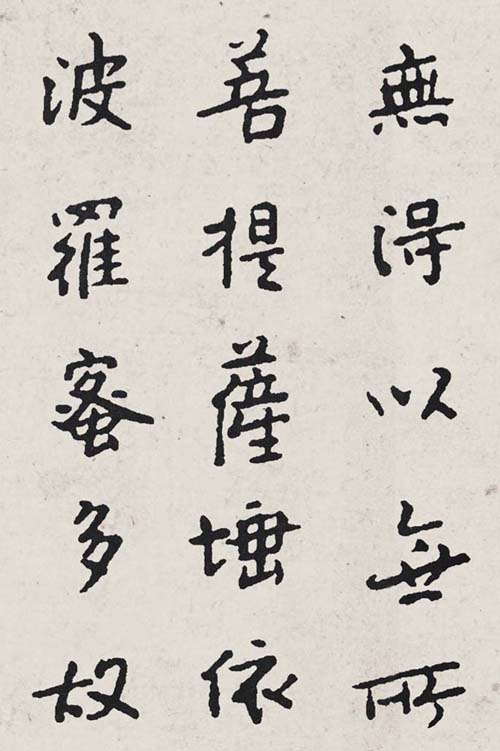 無得以無所
菩提薩埵依
波羅蜜多故